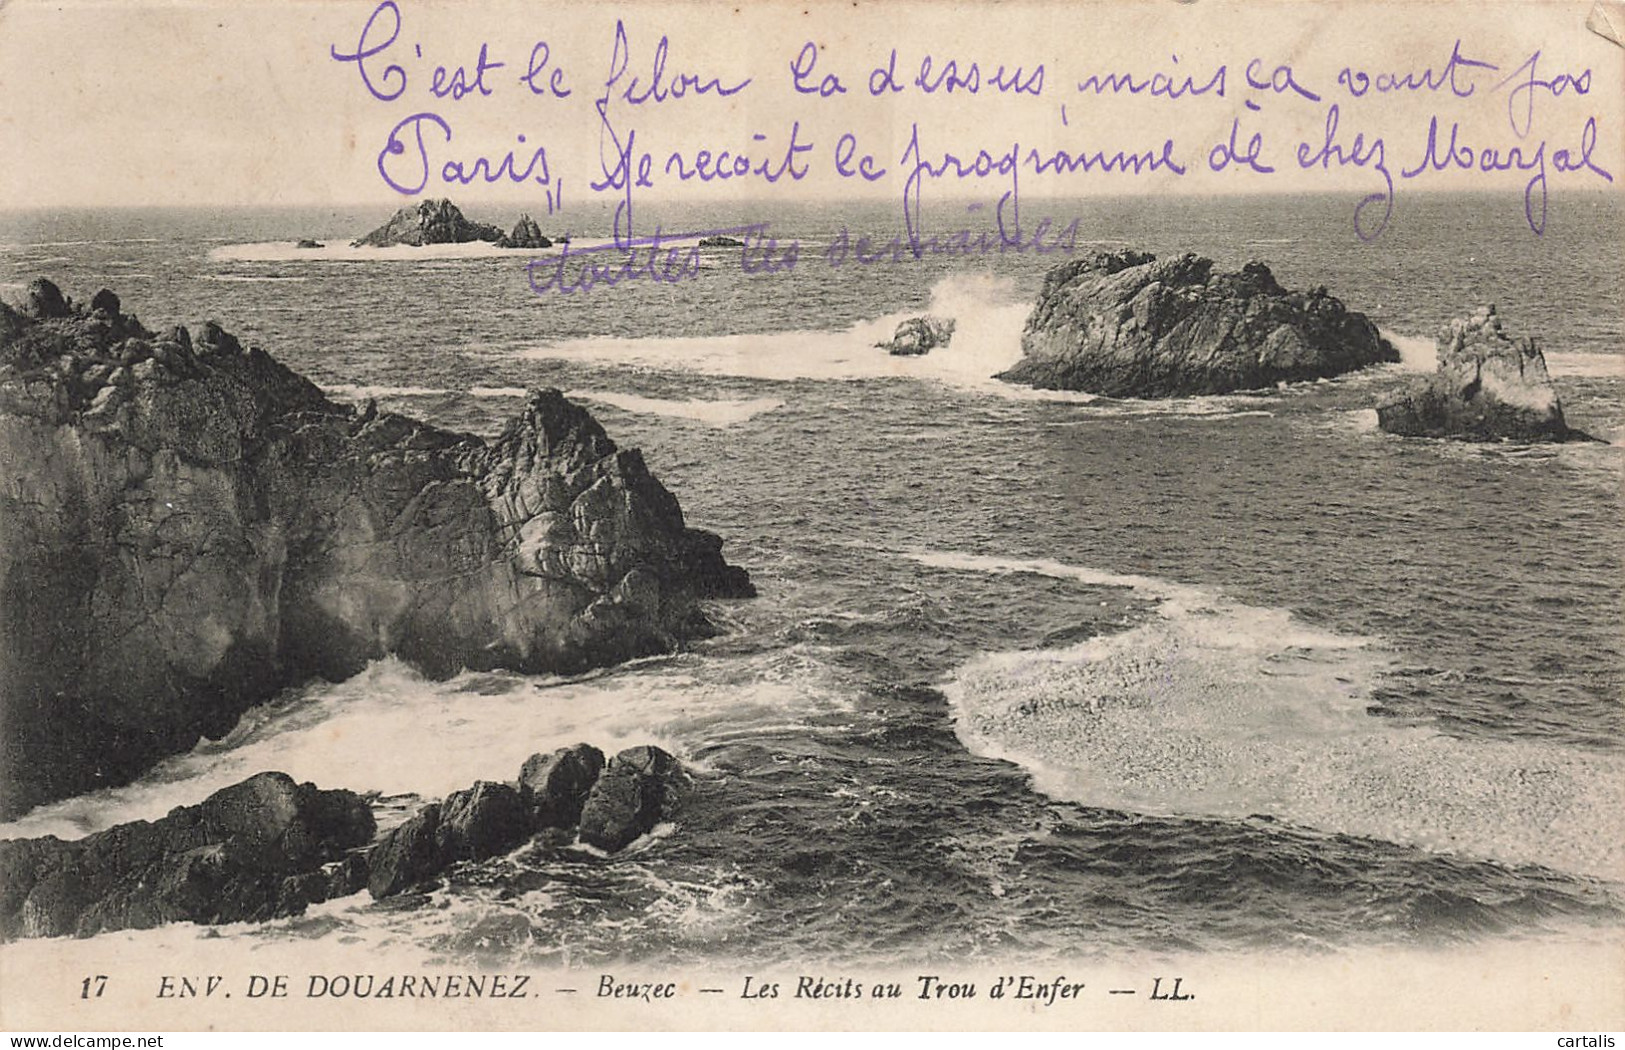 C'est le filon la dessus, mais ça vaut pas
Paris, Je recoit le programme de chez Maryal
toutes les semaines
17 ENV. DE DOUARNENEZ. — Beuzec — Les Récits au Trou d'Enfer — LL.
www.delcampe.net
cartalis